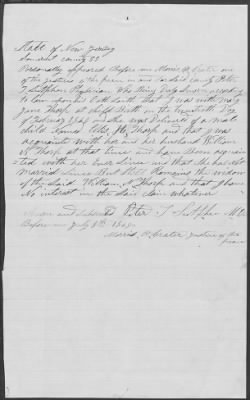 State of New Jersey
Somerset county SS
Personally appeared Before me Morris R Crater one
of the justices of the peace in and for said county Peter
T Sutphen Physician Who Being Duly Sworn according
to Law upon his Oath saith that I was with Mary
Jane Thorp at child Birth on the twentieth Day
of February 1848 and she was Delivered of a male
child named Thorp and that I was
acquainted with her and her husband William
N Thorp at that time and have Been acquain
ted with her Ever Since and that She has not
married Since But Still Remains the widow
of the Said William N Thorp and that I have
No interest in the Said claim whatever
Sworn and Subscribed Peter T Sutphen M.D.
Before me July 8th
Morris R Crater justice of the
peace